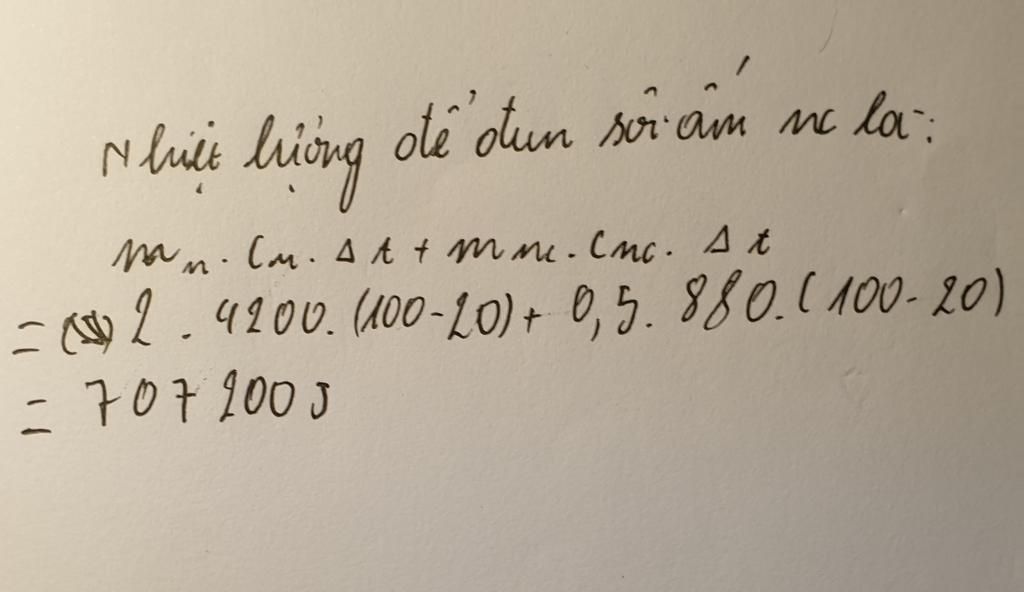 Nhiệt lượng để đun sôi ấm nc là:
m n . Cn . Δt + m nc . Cnc . Δt
= 2 . 4200 . (100 - 20) + 0,5 . 880 . (100 - 20)
= 707200J